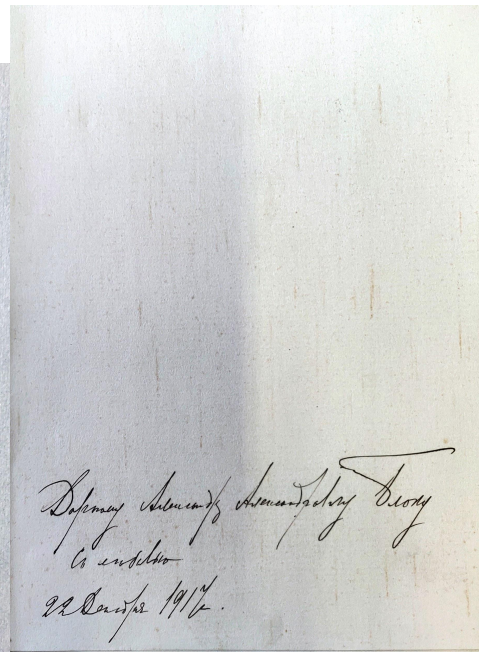 Дорогому Александру Александровичу Блоку
с любовью
22 Декабря 1917 г.